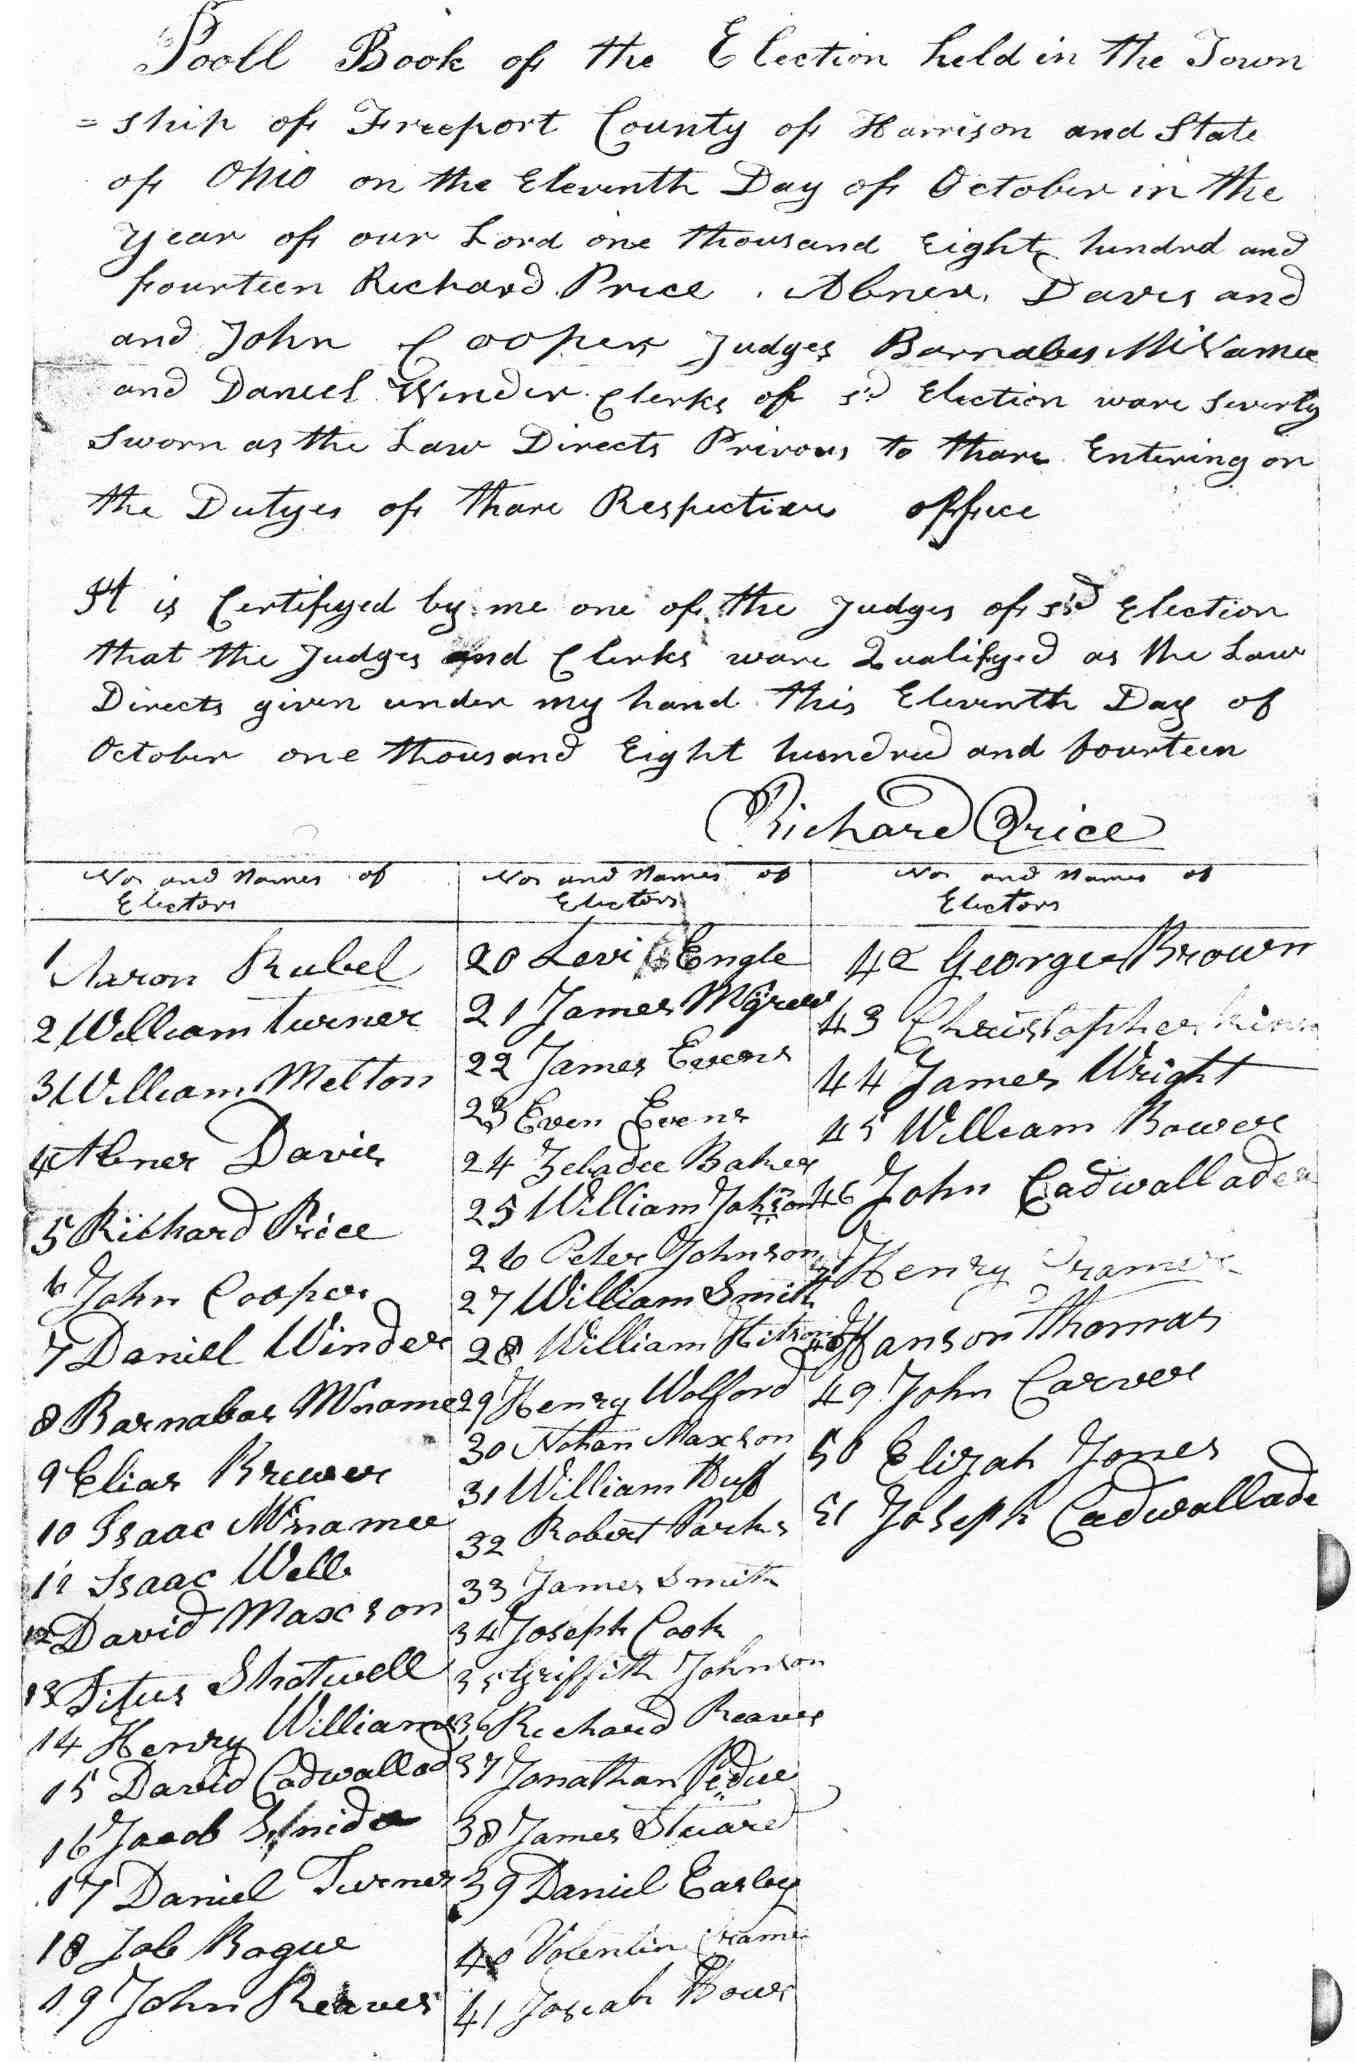 Pooll Book of the Election held in the Town
=ship of Freeport County of Harrison and State
of Ohio on the Eleventh Day of October in the
Year of our Lord one thousand Eight hundrd and
fourteen Richard Price . Abner. Davis and
and John Cooper Judges Barnabas McNamee
and Daniel Winder Clerks of sd Election ware Severly
Sworn as the Law Directs Privous to thare Entering on
the Dutyes of thare Respective office
It is Certifyed by me one of the Judges of sd Election
that the Judges and Clerks ware Qualifyed as the Law
Directs given under my hand this Eleventh Day of
October one thousand Eight hundred and fourteen
Richard Price
Nos and Names of
Electors
1 Aaron Rubel
2 William turner
3 William Melton
4 Abner Davis
5 Richard Price
6 John Cooper
7 Daniel Winder
8 Barnabas Mcname
9 Elias Brewer
10 Isaac Mcnamee
11 Isaac Wells
12 David Maxson
13 Titus Shotwell
14 Henry Williams
15 David Cadwallad
16 Jacob
17 Daniel Turner
18 Job Bogue
19 John Reaves
Nos and Names of
Electors
20 Levi Engle
21 James Mcgrew
22 James Evens
23 Even Evens
24 Baker
25 William Johnson
26 Peter Johnson
27 William Smith
28 William
29 Henry Wolford
30 Nathan Maxson
31 William Huff
32 Robert Parks
33 James Smith
34 Joseph Cook
35 Griffith Johnson
36 Richard Reaves
37 Jonathan Pedue
38 James Stuard
39 Daniel Easley
40 Volentin Crame
41 Josiah
Nos and Names of
Electors
42 George Brown
43 Christopher
44 James Wright
45 William Bower
46 John Cadwallader
47 Henry Cramer
48 Hanson Thomas
49 John Carver
50 Elijah Jones
51 Joseph Cadwallade